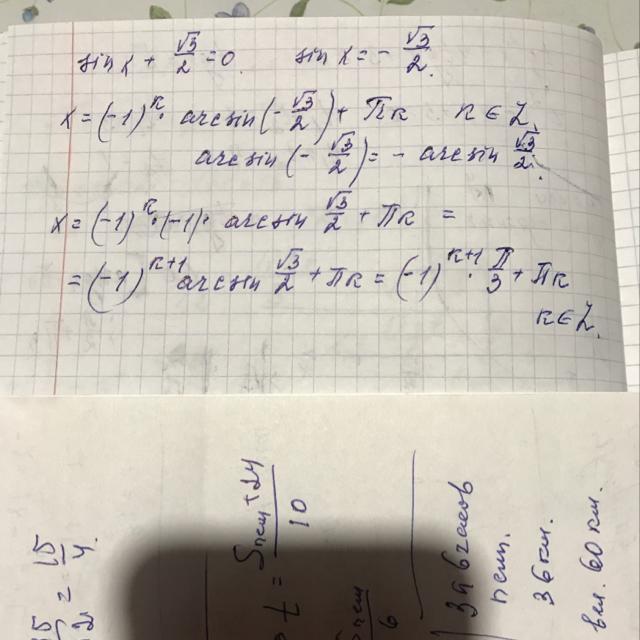 sin x + √3/2 = 0 sin x = - √3/2.
x = (-1)^k · arcsin(-√3/2) + πk k ∈ Z
arcsin(-√3/2) = - arcsin √3/2.
x = (-1)^k · (-1) · arcsin √3/2 + πk =
= (-1)^(k+1) arcsin √3/2 + πk = (-1)^(k+1) · π/3 + πk
k ∈ Z.
= 15/4
t = (Sпеш + 24)/10
за 6 часов
пеш.
36 км.
вел. 60 км.